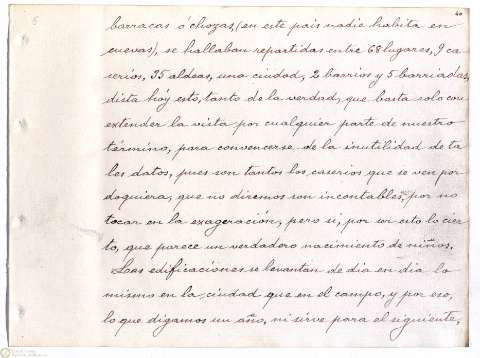 barracas ó chozas, (en este pais nadie habita en
cuevas), se hallaban repartidas entre 68 lugares, 9 ca
serios, 35 aldeas, una ciudad, 2 barrios y 5 barriadas,
dista hoy esto, tanto de la verdad, que basta solo con
extender la vista por cualquier parte de nuestro
término, para convencerse de la inutilidad de ta
les datos, pues son tantos los caserios que se ven por
doquiera, que no diremos son incontables, por no
tocar en la exageración, pero si, por ser esto lo cier
to, que parece un verdadero nacimiento de niños.
Las edificaciones se levantan de dia en dia lo
mismo en la ciudad que en el campo, y por eso,
lo que digamos un año, ni sirve para el siguiente,